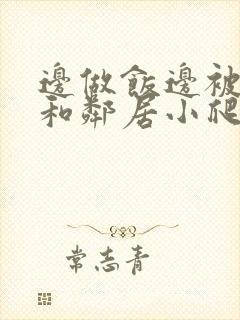 邊做飯邊被
和鄰居小爬
常志青